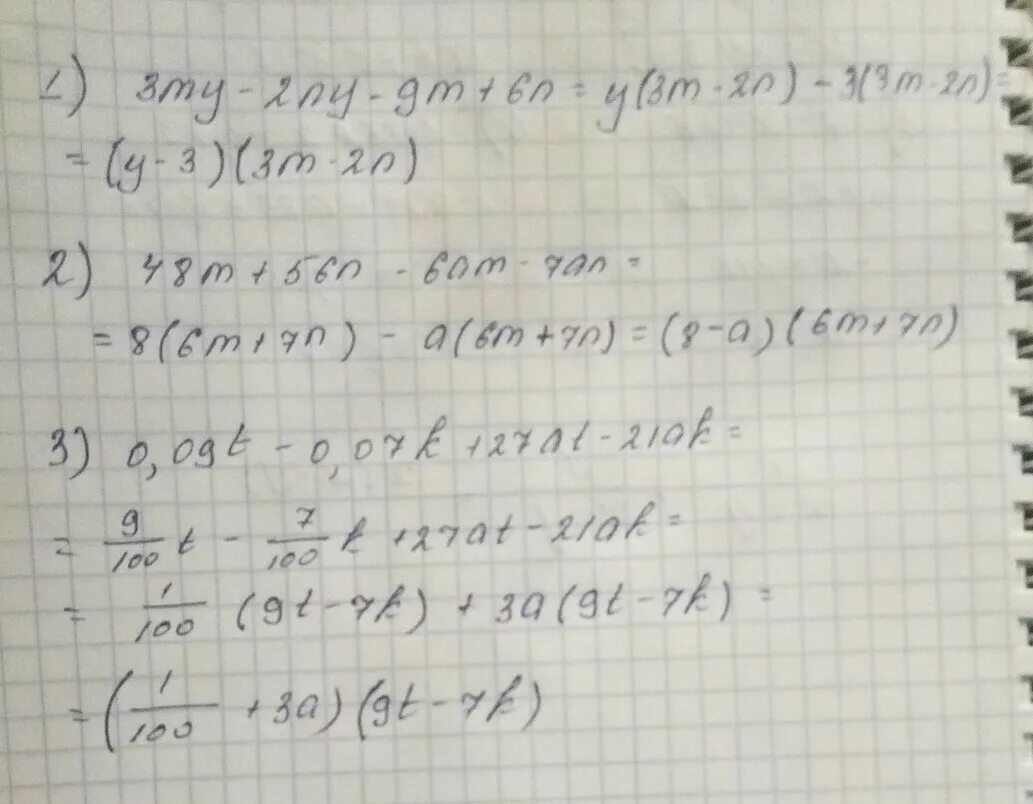 1) 3my - 2ny - 9m + 6n = y(3m - 2n) - 3(3m - 2n) =
= (y - 3)(3m - 2n)
2) 48m + 56n - 6am - 7an =
= 8(6m + 7n) - a(6m + 7n) = (8 - a)(6m + 7n)
3) 0,09t - 0,07k + 27at - 21ak =
= 9/100 t - 7/100 k + 27at - 21ak =
= 1/100 (9t - 7k) + 3a(9t - 7k) =
= (1/100 + 3a)(9t - 7k)